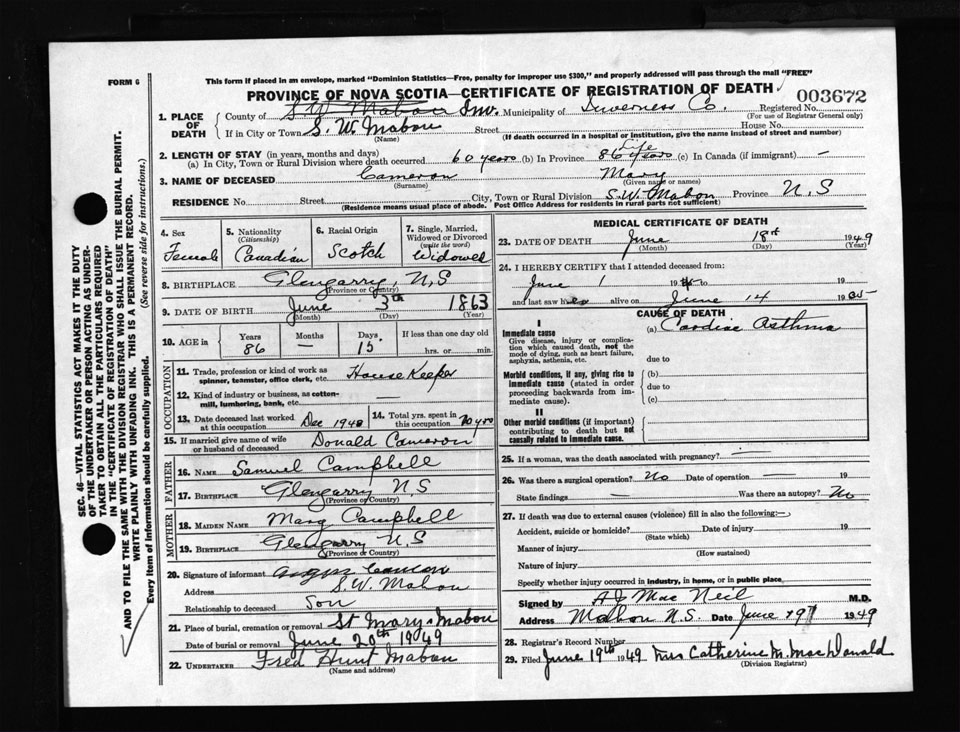 FORM 6
This form if placed in an envelope, marked "Dominion Statistics—Free, penalty for improper use $300," and properly addressed will pass through the mail "FREE"
PROVINCE OF NOVA SCOTIA—CERTIFICATE OF REGISTRATION OF DEATH
003672
1. PLACE OF DEATH
County of S.W. Mabou Inv. Municipality of Inverness Co. Registered No.
(For use of Registrar General only)
If in City or Town S. W. Mabou Street House No.
(Name) (If death occurred in a hospital or institution, give the name instead of street and number)
2. LENGTH OF STAY (in years, months and days)
Life
(a) In City, Town or Rural Division where death occurred 60 years (b) In Province 86 years (c) In Canada (if immigrant) —
3. NAME OF DECEASED Cameron Mary
(Surname) (Given name or names)
RESIDENCE No. Street City, Town or Rural Division S.W. Mabou Province N.S
(Residence means usual place of abode. Post Office Address for residents in rural parts not sufficient)
4. Sex Female
5. Nationality (Citizenship) Canadian
6. Racial Origin Scotch
7. Single, Married, Widowed or Divorced (write the word) Widowed
8. BIRTHPLACE Glengarry N,S
(Province or Country)
9. DATE OF BIRTH June 3th 1863
(Month) (Day) (Year)
10. AGE in Years 86 Months — Days 15 If less than one day old hrs. or min.
OCCUPATION
11. Trade, profession or kind of work as spinner, teamster, office clerk, etc. House Keeper
12. Kind of industry or business, as cotton-mill, lumbering, bank, etc. —
13. Date deceased last worked at this occupation Dec 1948
14. Total yrs. spent in this occupation 70 yrs
15. If married give name of wife or husband of deceased Donald Cameron
FATHER
16. NAME Samuel Campbell
17. BIRTHPLACE Glengarry N.S
(Province or Country)
MOTHER
18. MAIDEN NAME Mary Campbell
19. BIRTHPLACE Glengarry N.S
(Province or Country)
20. Signature of informant Angus
Address S.W. Mabou
Relationship to deceased Son
21. Place of burial, cremation or removal St Marys Mabou
Date of burial or removal June 20th 1949
22. UNDERTAKER Fred Hunt Mabou
MEDICAL CERTIFICATE OF DEATH
23. DATE OF DEATH June 18th 1949
(Month) (Day) (Year)
24. I HEREBY CERTIFY that I attended deceased from:
June 1 19
and last saw her alive on June 14 19
CAUSE OF DEATH
I
Immediate cause (a) Cardiac Asthma
Give disease, injury or complication which caused death, not the mode of dying, such as heart failure, asphyxia, asthenia, etc.
due to
Morbid conditions, if any, giving rise to immediate cause (stated in order proceeding backwards from immediate cause).
(b)
due to
(c)
II
Other morbid conditions (if important) contributing to death but not causally related to immediate cause.
25. If a woman, was the death associated with pregnancy? —
26. Was there a surgical operation? No Date of operation 19
State findings — Was there an autopsy? No
27. If death was due to external causes (violence) fill in also the following:—
Accident, suicide or homicide? Date of injury 19
(State which)
Manner of injury
(How sustained)
Nature of injury
Specify whether injury occurred in industry, in home, or in public place
Signed by A J Mac Neil M.D.
Address Mabou N.S. Date June 1949
28. Registrar's Record Number
29. Filed June 19th 1949 Mrs Catherine M. MacDonald
(Division Registrar)
SEC. 46—VITAL STATISTICS ACT MAKES IT THE DUTY
OF THE UNDERTAKER OR PERSON ACTING AS UNDER-
TAKER TO OBTAIN ALL THE PARTICULARS REQUIRED
IN THE "CERTIFICATE OF REGISTRATION OF DEATH"
AND TO FILE THE SAME WITH THE DIVISION REGISTRAR WHO SHALL ISSUE THE BURIAL PERMIT.
WRITE PLAINLY WITH UNFADING INK. THIS IS A PERMANENT RECORD.
Every item of information should be carefully supplied. (See reverse side for instructions.)